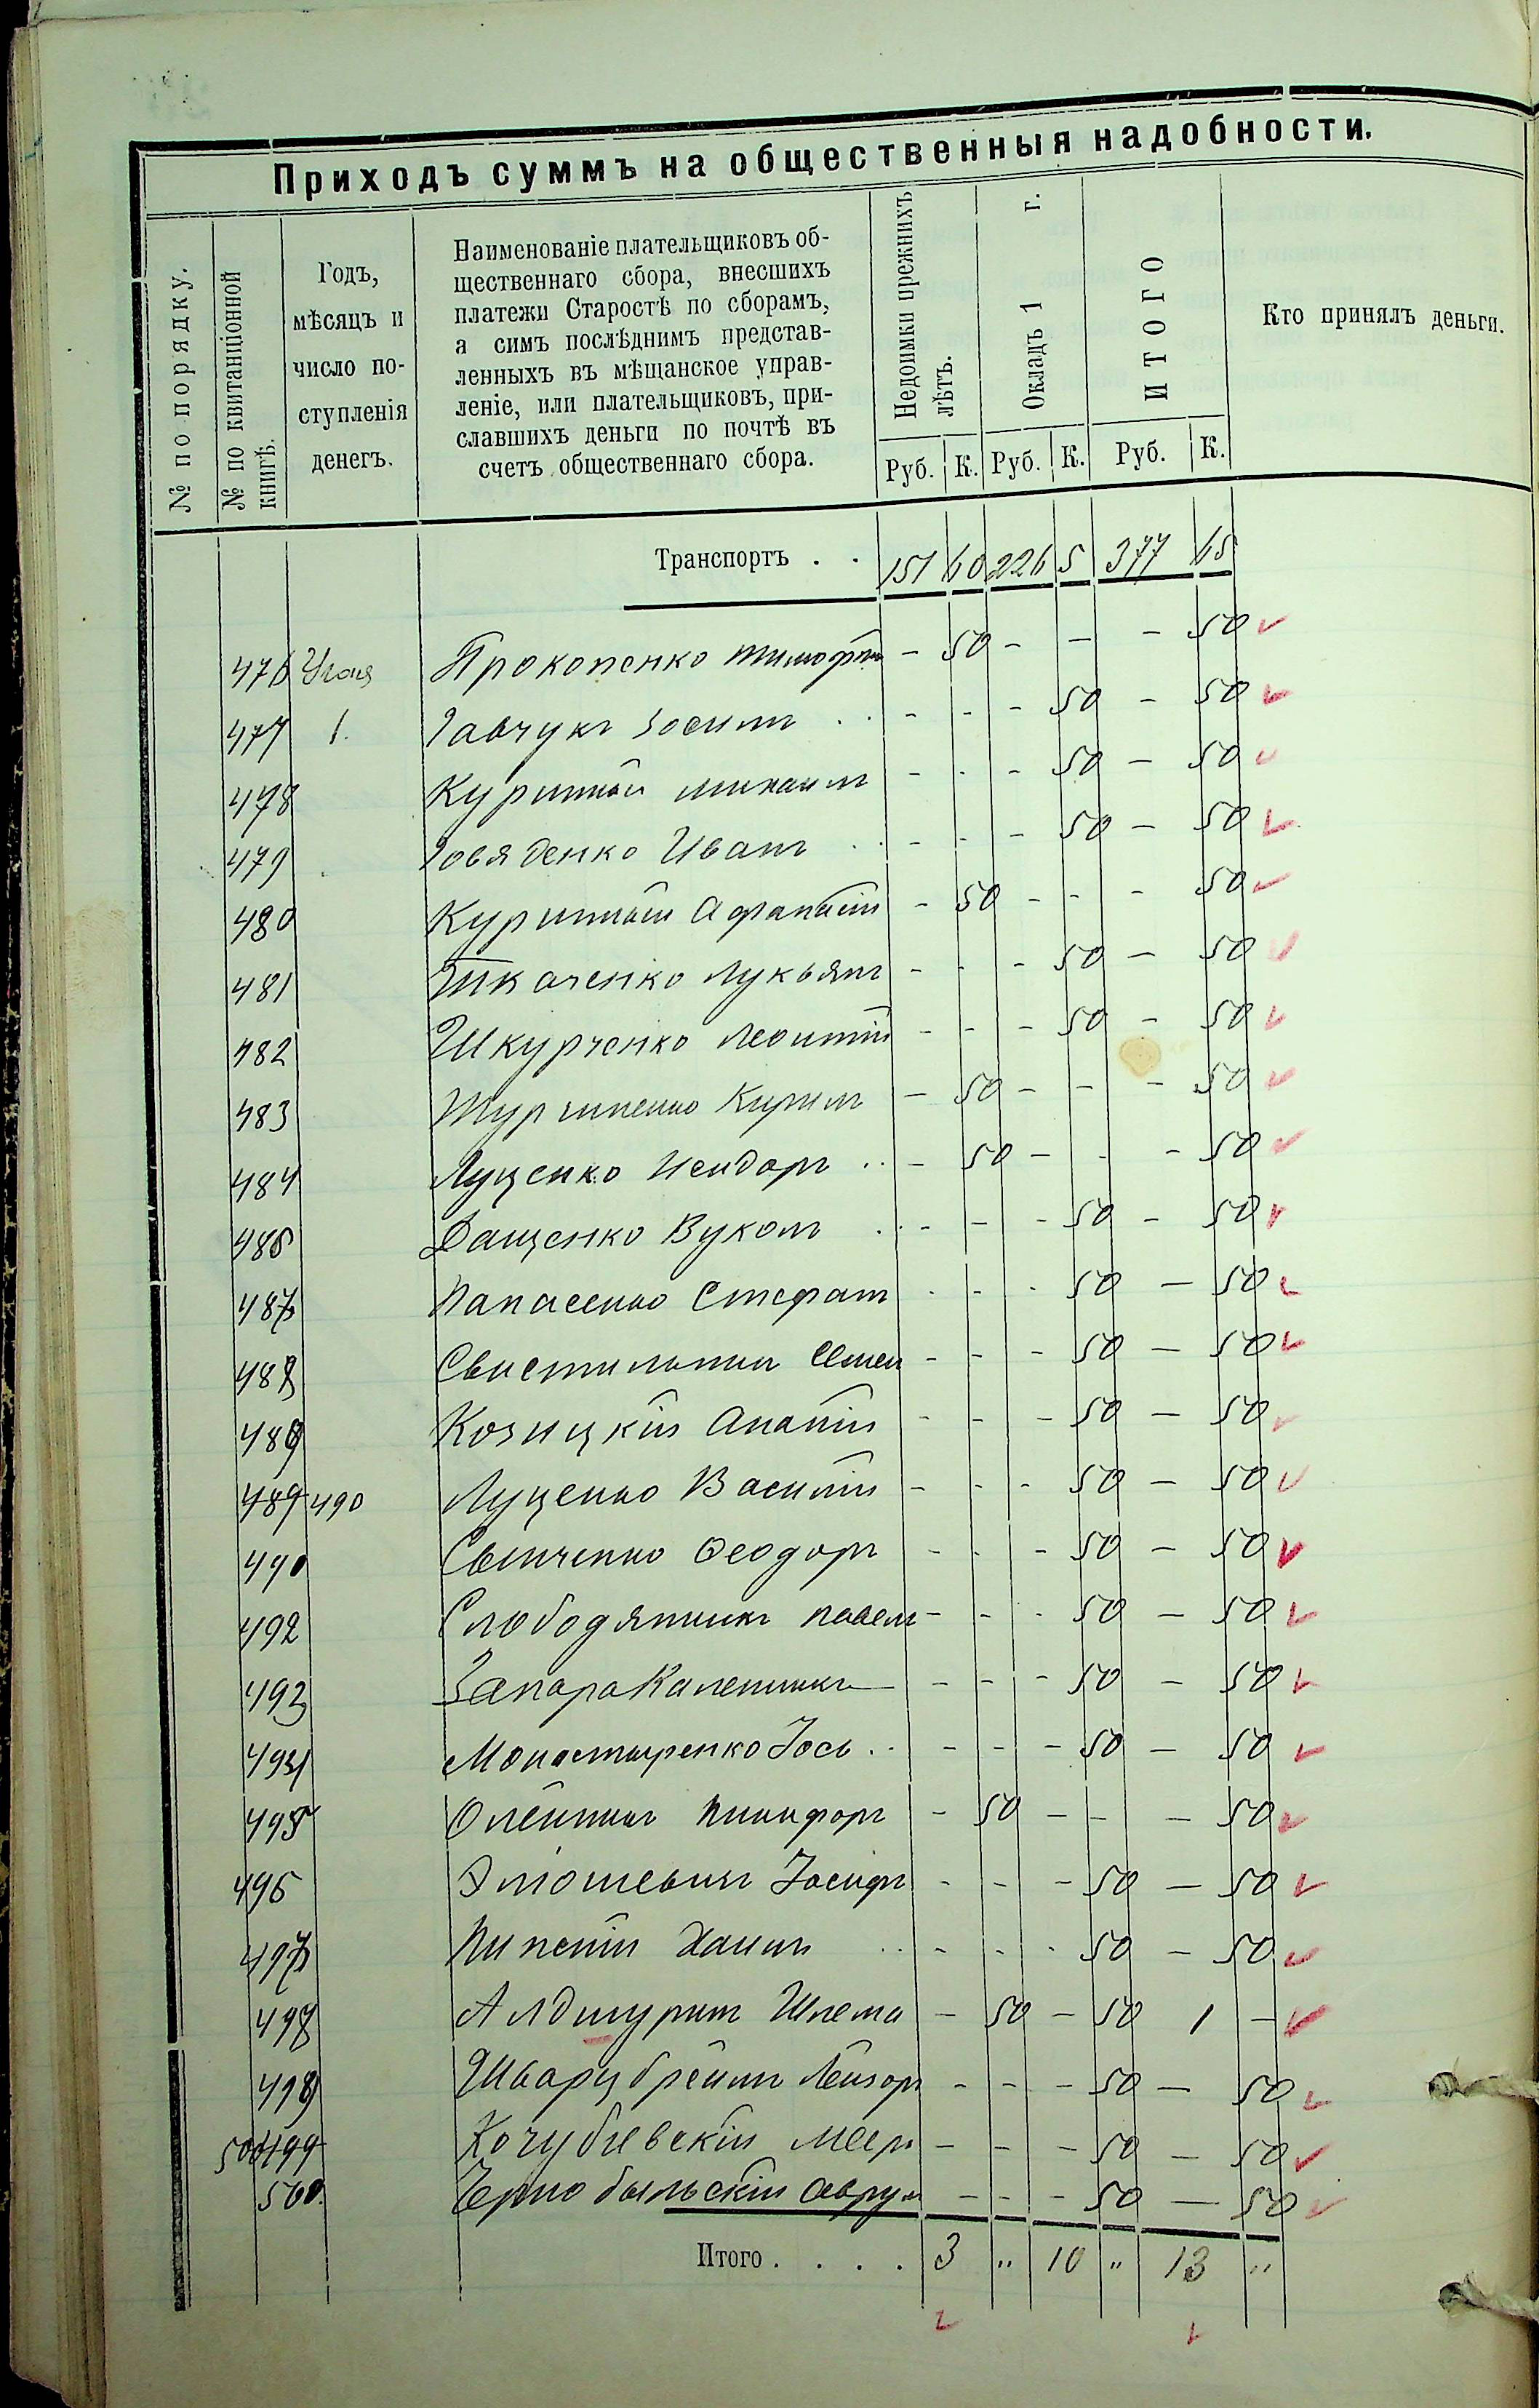 Приходъ суммъ на общественныя надобности.
№ по порядку.
№ по квитанціонной книгѣ.
Годъ,
мѣсяцъ и
число по-
ступленія
денегъ.
Наименованіе плательщиковъ об-
щественнаго сбора, внесшихъ
платежи Старостѣ по сборамъ,
а симъ послѣднимъ представ-
ленныхъ въ мѣщанское управ-
леніе, или плательщиковъ, при-
славшихъ деньги по почтѣ въ
счетъ общественнаго сбора.
Недоимки прежнихъ лѣтъ.
Окладъ 1 г.
ИТОГО
Кто принялъ деньги.
Руб. К. Руб. К. Руб. К.
Транспортъ . . 151 60 226 5 377 65
476 Прокопенко Тимофей - 50 - - - 50
477 1. Савчукъ Зосимъ . . - - - 50 - 50
478 Куритный Михаилъ - - - 50 - 50
479 Говяденко Иванъ . . - - - 50 - 50
480 Куритный Афанасій - 50 - - - 50
481 Ткаченко Лукьянъ - - - 50 - 50
482 Шкурченко Леонтій - - - 50 - 50
483 Кирилъ - 50 - - - 50
484 Луценко Исидоръ . . - 50 - - - 50
485 Дащенко Вуколъ . . - - - 50 - 50
487 Панасенко Стефанъ - - - 50 - 50
488 Семен - - - 50 - 50
489 Козицкій - - - 50 - 50
489 490 Луценко Василій - - - 50 - 50
490 Ѳеодоръ - - - 50 - 50
492 Слободяникъ Павелъ - - - 50 - 50
493 Запара Каленикъ - - - 50 - 50
494 Монастыренко Іось . . - - - 50 - 50
495 Олейникъ Никифоръ - 50 - - - 50
496 Іосифъ - - - 50 - 50
497 Хаимъ . . - - - 50 - 50
498 Шлема - 50 - 50 1 -
499 Шварцбреймъ Лейзоръ - - - 50 - 50
500 499 Кочубіевскій Меер - - - 50 - 50
500. Чернобыльскій Аврум - - - 50 - 50
Итого . . . . 3 " 10 " 13 "